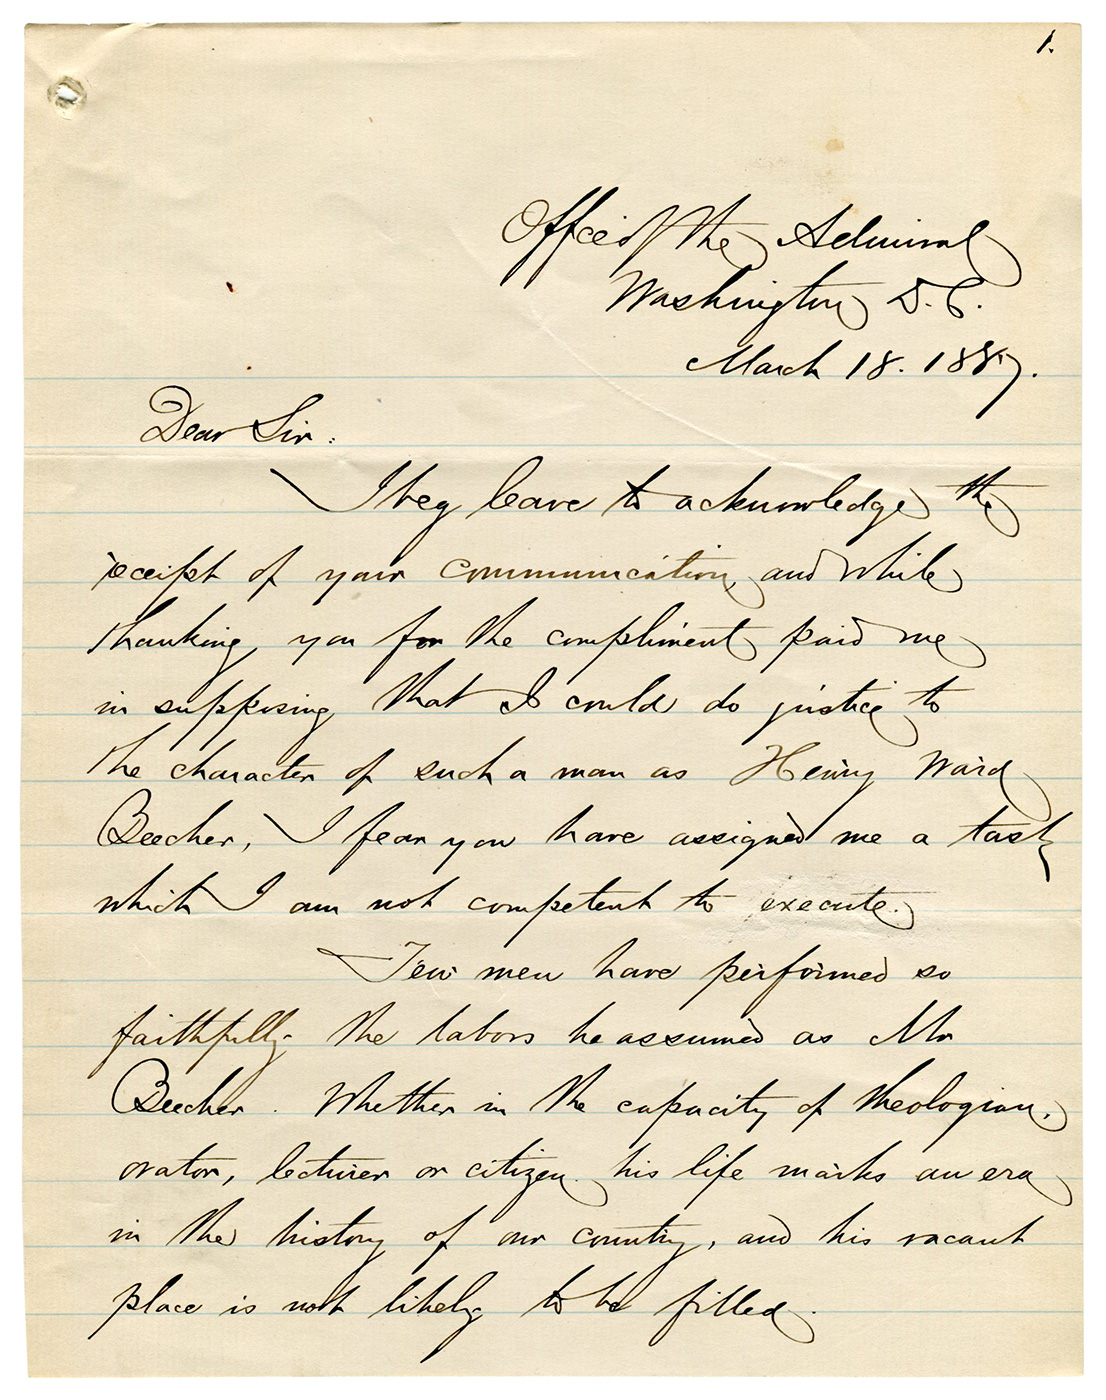 1.
Office of the Admiral
Washington D.C.
March 18. 1887.
Dear Sir:
I beg leave to acknowledge the
receipt of your communication, and while
thanking you for the compliment paid me
in supposing that I could do justice to
the character of such a man as Henry Ward
Beecher, I fear you have assigned me a task
which I am not competent to execute.
Few men have performed so
faithfully the labors he assumed as Mr
Beecher. Whether in the capacity of theologian,
orator, lecturer or citizen his life marks an era
in the history of our country, and his vacant
place is not likely to be filled.